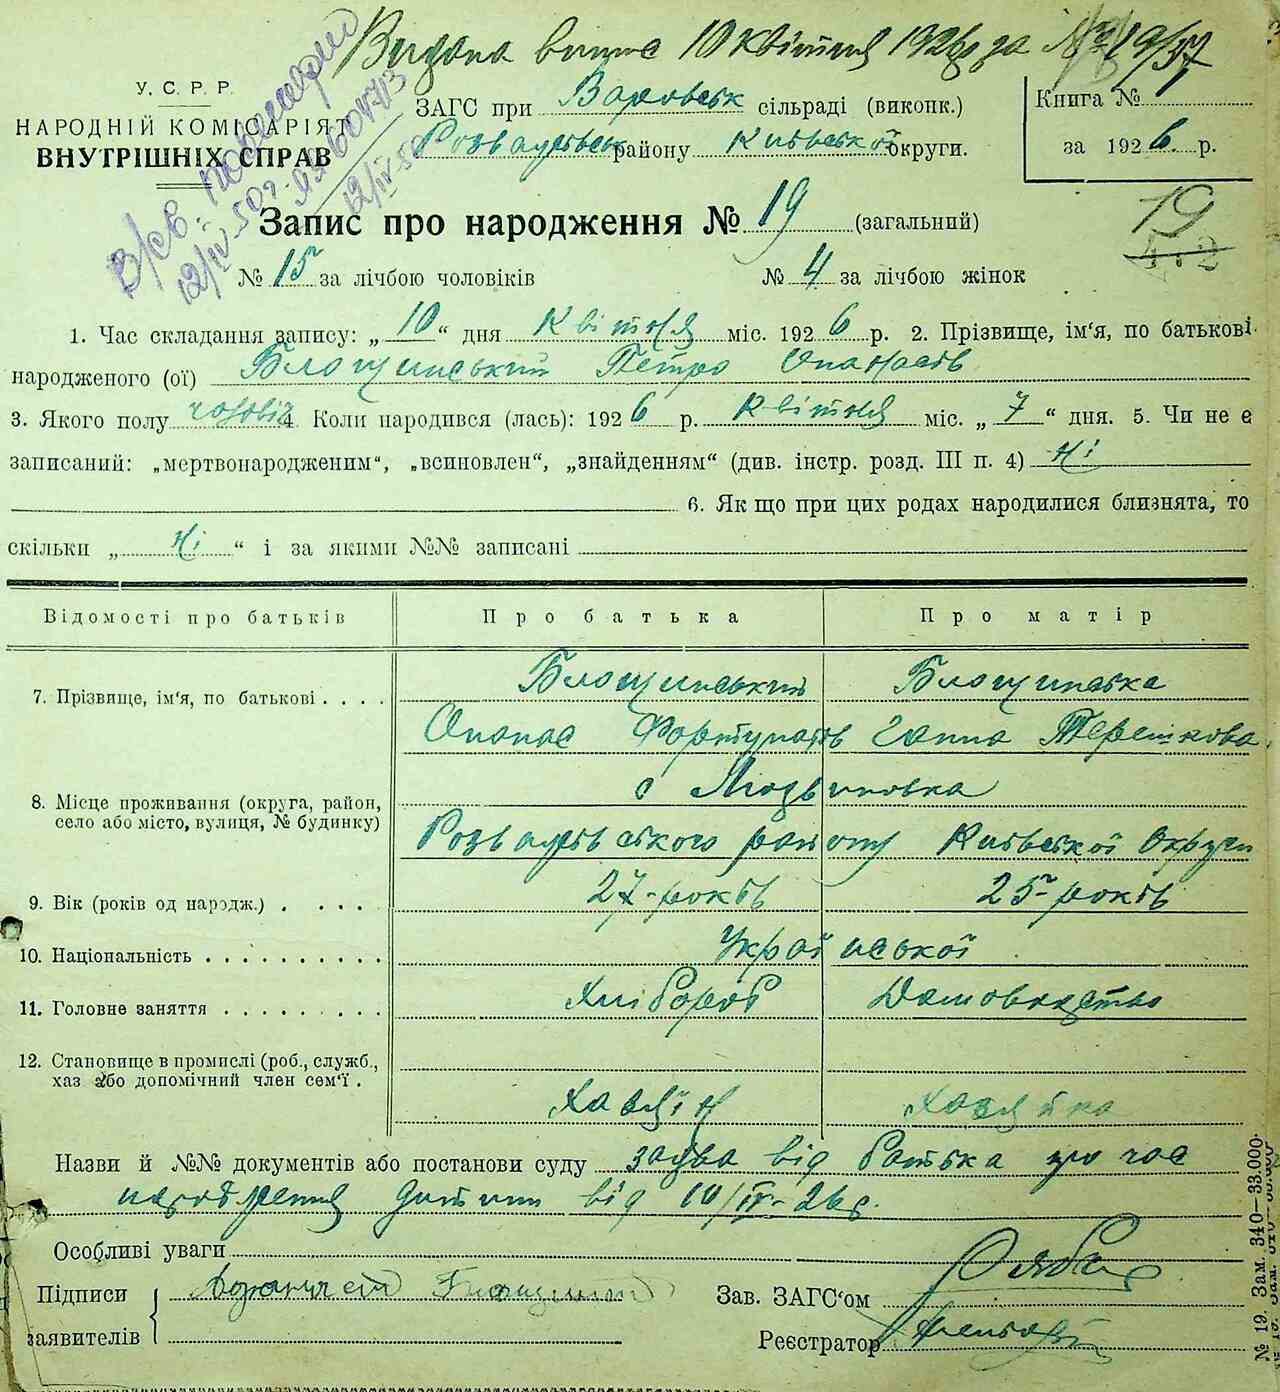 Видана витпс 10 квітня 1926р за № 19/37
В/св. повторний
12/IV-50 г. ЯЯ 604713
12/IV-50
У. С. Р. Р.
НАРОДНІЙ КОМІСАРІЯТ
ВНУТРІШНІХ СПРАВ
ЗАГС при Варовськ сільраді (виконк.)
Розважівськ району Київської округи.
Книга №
за 1926 р.
Запис про народження № 19 (загальний)
19
№ 15 за лічбою чоловіків № 4 за лічбою жінок
1. Час складання запису: „ 10 “ дня Квітня міс. 1926 р. 2. Прізвище, ім'я, по батькові
народженого (ої) Блощинський Петро Опанасів
3. Якого полу чоловіч 4. Коли народився (лась): 1926 р. Квітня міс. „ 7 “ дня. 5. Чи не є
записаний: „мертвонародженим“, „всиновлен“, „знайденням“ (див. інстр. розд. III п. 4) Ні
6. Як що при цих родах народилися близнята, то
скільки „ Ні “ і за якими №№ записані
Відомості про батьків Про батька Про матір
7. Прізвище, ім'я, по батькові . . . . Блощинський Блощинська
Опанас Фортунатів Ганна Терешкова
8. Місце проживання (округа, район,
село або місто, вулиця, № будинку)
с Людвиновка
Розважівського району Київської Округи
9. Вік (років од народж.) . . . . 27-років 25-років
10. Національність . . . . . . . . . . Української
11. Головне заняття . . . . . . . . . Хлібороб Домоводство
12. Становище в промислі (роб., служб.,
хаз або допомічний член сем'ї .
Хазяїн Хазяйка
Назви й №№ документів або постанови суду заява від батька про час
народження дитини від 10/IV-26р.
Особливі уваги
Підписи
заявителів
Зав. ЗАГС'ом
Реєстратор
№ 19. Зам. 340—33.000.